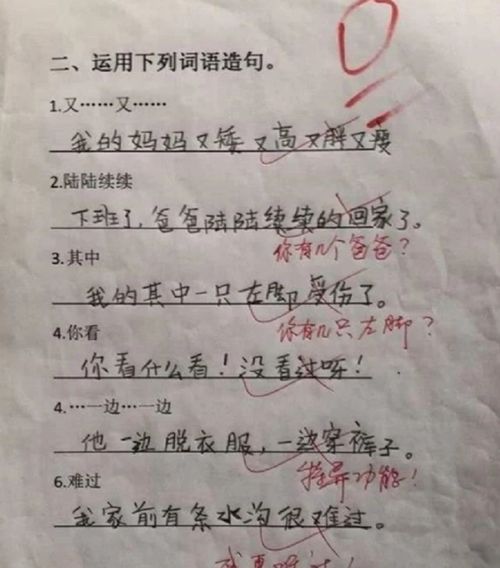 0
二、运用下列词语造句。
1.又……又……
我的妈妈又矮又高又胖又瘦
2.陆陆续续
下班了，爸爸陆陆续续的回家了。
你有几个爸爸？
3.其中
我的其中一只左脚受伤了。
你有几只左脚？
4.你看
你看什么看！没看过呀！
4.…一边…一边
他一边脱衣服，一边穿裤子。
特异功能！
6.难过
我家前有条水沟很难过。